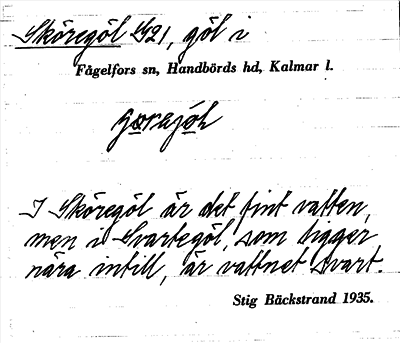 Sköregöl 1921, göl i
Fågelfors sn, Handbörds hd, Kalmar l.
I Sköregöl är det fint vatten,
men i Svartegöl, som ligger
nära intill, är vattnet svart.
Stig Bäckstrand 1935.